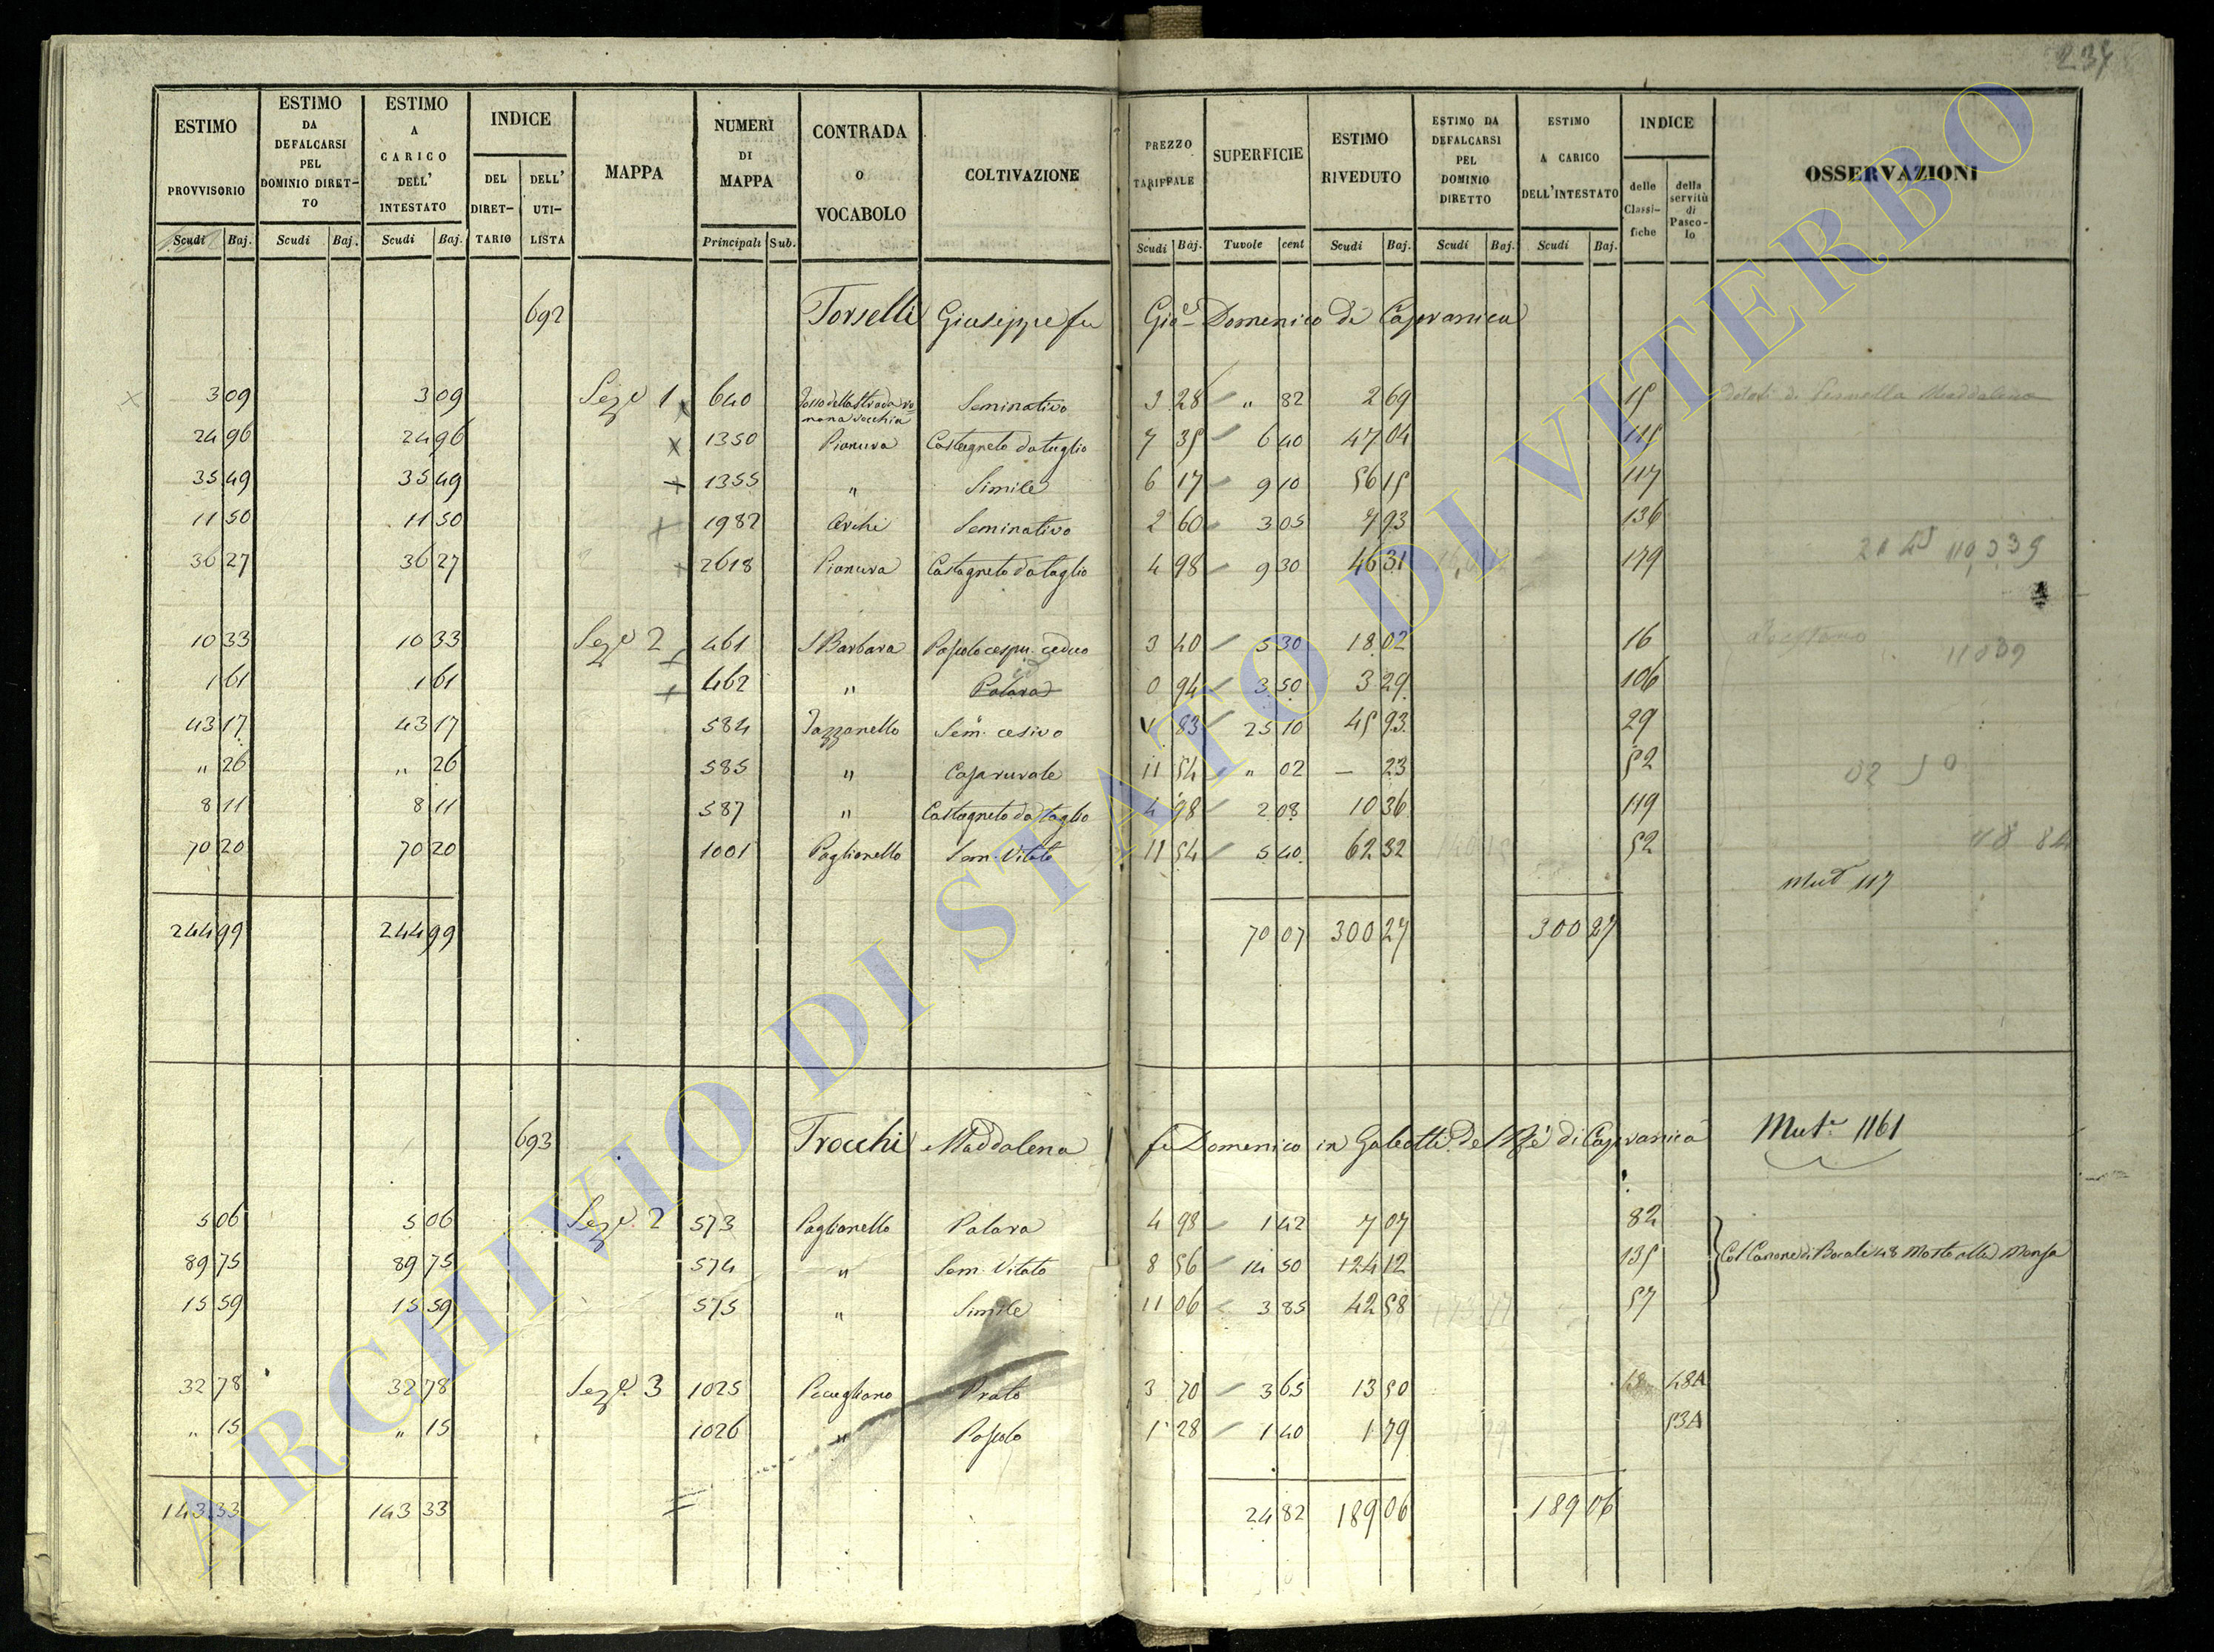 234
ESTIMO PROVVISORIO Scudi Baj.
ESTIMO DA DEFALCARSI PEL DOMINIO DIRET-TO Scudi Baj.
ESTIMO A CARICO DELL' INTESTATO Scudi Baj.
INDICE DEL DIRET-TARIO DELL' UTI-LISTA
MAPPA
NUMERI DI MAPPA Principali Sub.
CONTRADA O VOCABOLO
COLTIVAZIONE
PREZZO TARIFFALE Scudi Baj.
SUPERFICIE Tavole cent
ESTIMO RIVEDUTO Scudi Baj.
ESTIMO DA DEFALCARSI PEL DOMINIO DIRETTO Scudi Baj.
ESTIMO A CARICO DELL'INTESTATO Scudi Baj.
INDICE delle Classi-fiche della servitù di Pasco-lo
OSSERVAZIONI
692 Torselli Giuseppe fu Gio Domenico di Capranica
3 09 3 09 Seze 1 640 Fosso della Strada romana vecchia Seminativo 3 28 " 82 2 69 15
24 96 24 96 1350 Pianura Castagneto da taglio 7 35 6 40 47 04 115
35 49 35 49 1355 " Simile 6 17 9 10 56 15 117
11 50 11 50 1982 Archi Seminativo 2 60 3 05 7 93 136
36 27 36 27 2618 Pianura Castagneto da taglio 4 98 9 30 46 31 179
10 33 10 33 Seze 2 461 S Barbara Pascolo cespu. ceduo 3 40 5 30 18 02 16
1 61 1 61 462 " Palara 0 94 3 50 3 29 106
43 17 43 17 584 Sem. cesivo 1 83 25 10 45 93 29
" 26 " 26 585 " Casa rurale 11 54 " 02 — 23 52
8 11 8 11 587 " Castagneto da taglio 4 98 2 08 10 36 119
70 20 70 20 1001 Paglianello Sem. Vitato 11 54 5 40 62 32 52
Mut 117
244 99 244 99 70 07 300 27 300 27
693 Trocchi Maddalena fu Domenico in Galeotti di Capranica Mut. 1161
5 06 5 06 Seze 2 573 Paglianello Palara 4 98 1 42 7 07 82
89 75 89 75 574 " Sem. Vitato 8 56 14 50 124 12 135 Col Canone di Bocali 48 Mosto alla Mensa
15 59 15 59 575 " Simile 11 06 3 85 42 58 57
32 78 32 78 Seze 3 1025 Prato 3 70 3 65 13 50 48 48A
" 15 " 15 1026 " Pascolo 1 28 1 40 1 79 53A
143 33 143 33 24 82 189 06 189 06
ARCHIVIO DI STATO DI VITERBO